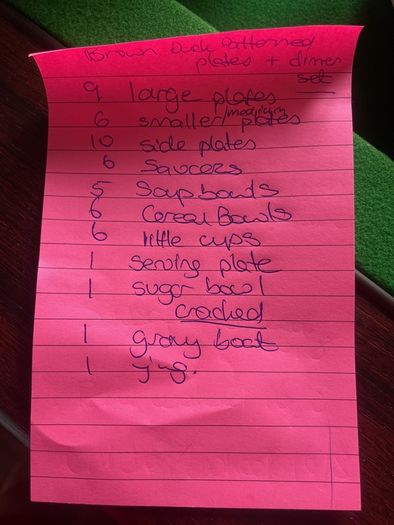 Brown Duck Patterned
plates + dinner
set
9 large plates
/medium
6 smaller plates
10 side plates
6 Saucers
5 Soup bowls
6 Cereal Bowls
6 little cups
1 serving plate
1 sugar bowl
cracked
1 gravy boat
1 jug.